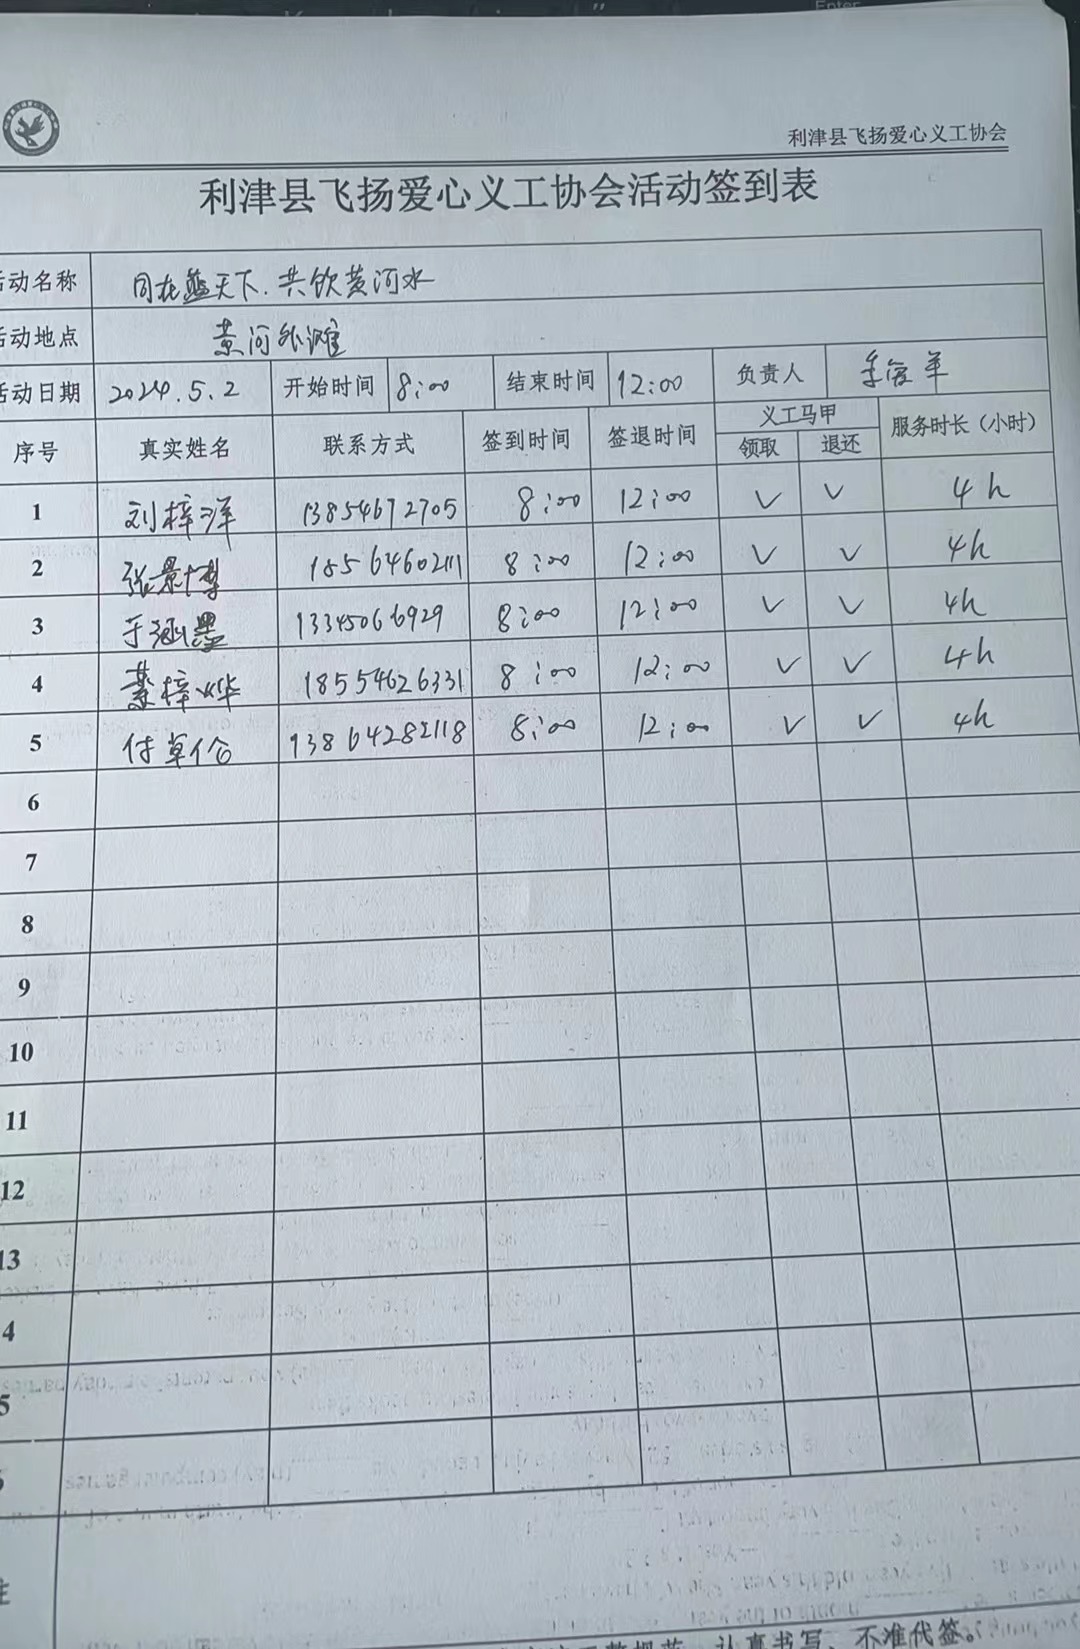 Enter
利津县飞扬爱心义工协会
利津县飞扬爱心义工协会活动签到表
活动名称 同在蓝天下.共饮黄河水
活动地点 黄河外滩
活动日期 2024.5.2 开始时间 8:00 结束时间 12:00 负责人
序号 真实姓名 联系方式 签到时间 签退时间 义工马甲 服务时长（小时）
领取 退还
1 刘梓洋 13854672705 8:00 12:00 √ √ 4h
2 张景博 18564602111 8:00 12:00 √ √ 4h
3 于涵墨 13345066929 8:00 12:00 √ √ 4h
4 綦梓烨 18554626331 8:00 12:00 √ √ 4h
5 付卓伦 13864282118 8:00 12:00 √ √ 4h
6
7
8
9
10
11
12
13
4
5
注
认真书写、不准代签。